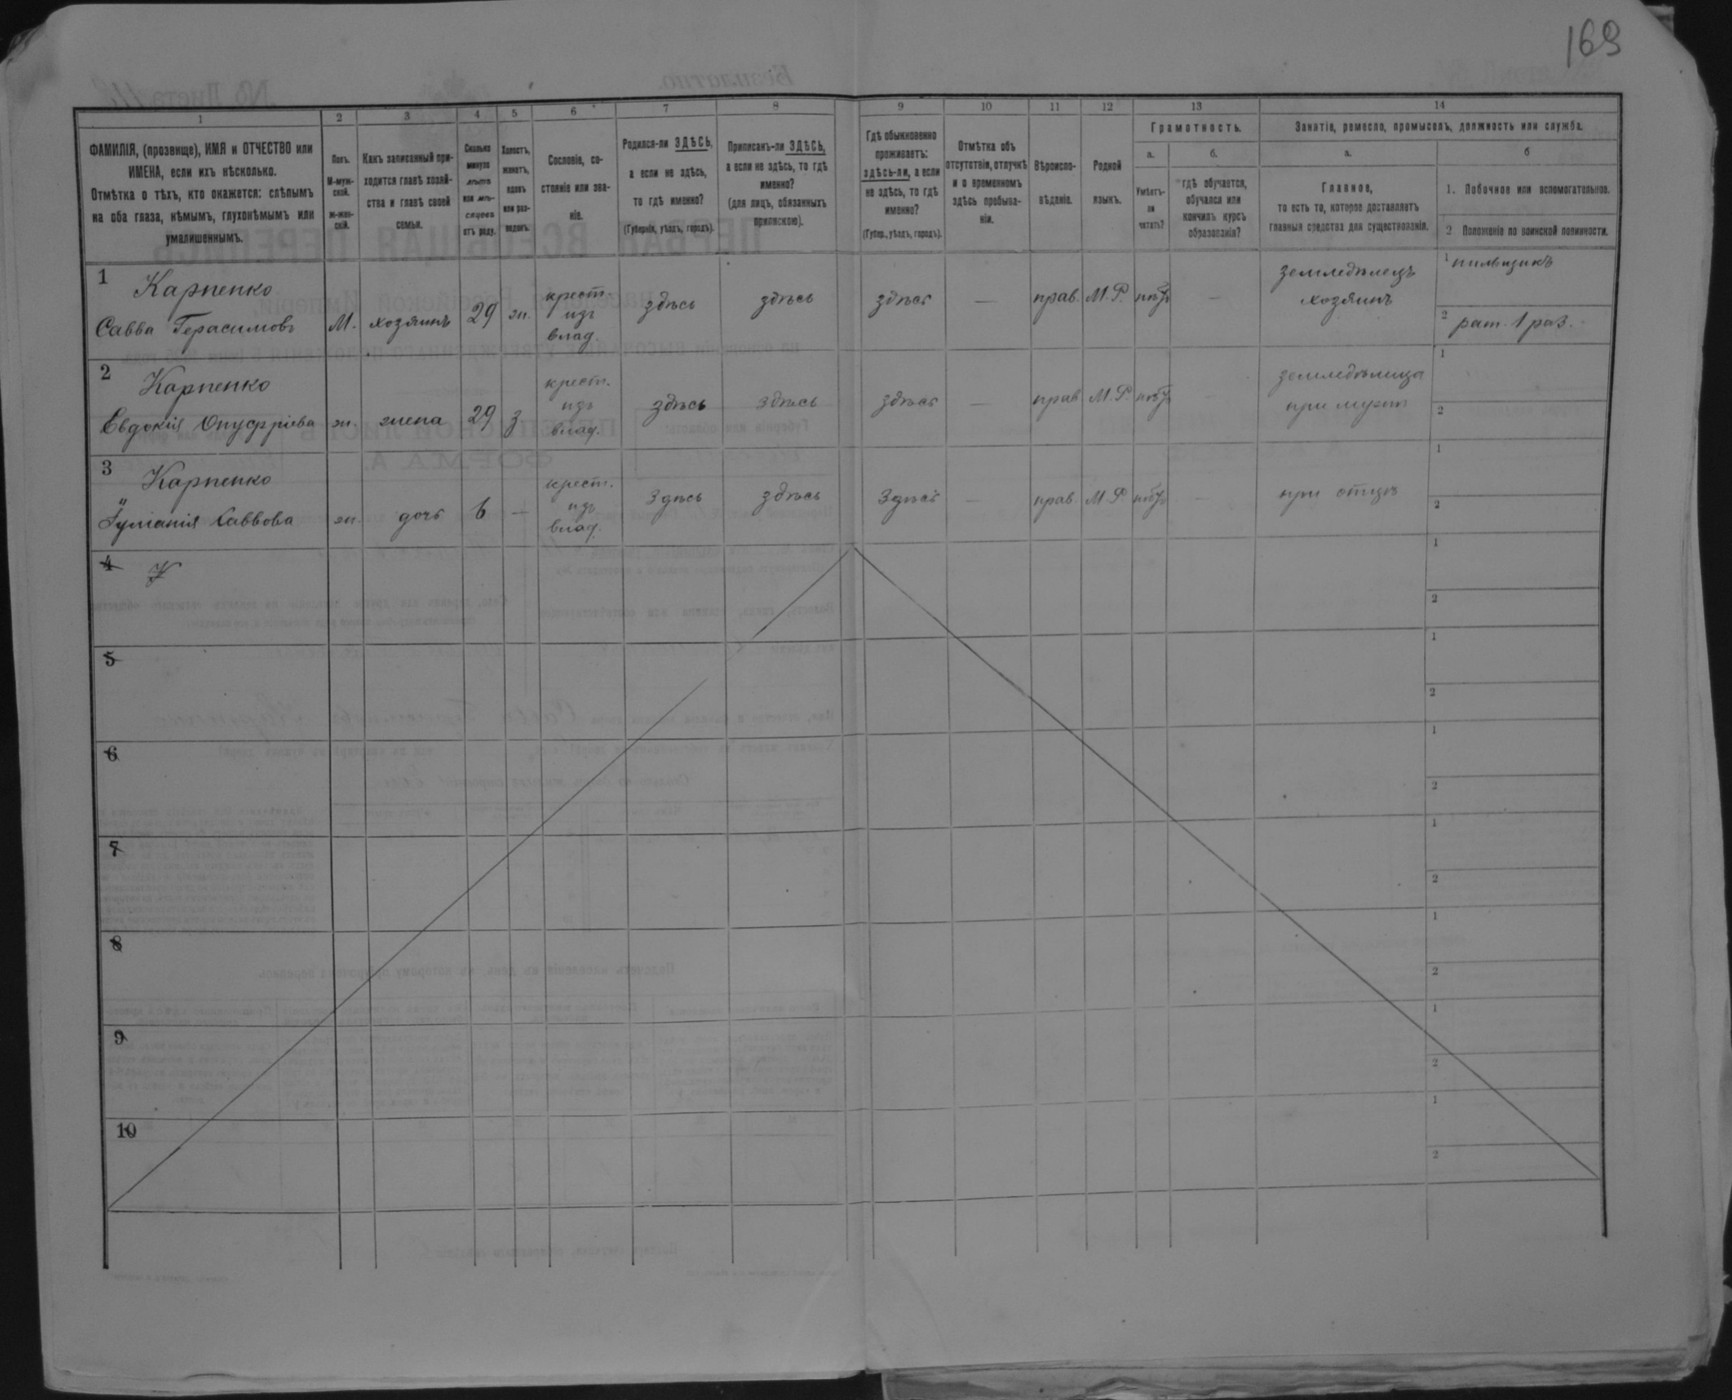 169
1
2
3
4
5
6
7
8
9
10
11
12
13
14
ФАМИЛІЯ, (прозвище), ИМЯ и ОТЧЕСТВО или
ИМЕНА, если ихъ нѣсколько.
Отмѣтка о тѣхъ, кто окажется: слѣпымъ
на оба глаза, нѣмымъ, глухонѣмымъ или
умалишеннымъ.
Полъ.
М-муж-
ской.
ж-жен-
скій.
Какъ записанный при-
ходится главѣ хозяй-
ства и главѣ своей
семьи.
Сколько
минуло
лѣтъ
или мѣ-
сяцевъ
отъ роду.
Холостъ,
женатъ,
вдовъ
или раз-
веденъ.
Сословіе, со-
стояніе или зва-
ніе.
Родился-ли ЗДѢСЬ,
а если не здѣсь,
то гдѣ именно?
(Губернія, уѣздъ, городъ).
Приписанъ-ли ЗДѢСЬ,
а если не здѣсь, то гдѣ
именно?
(для лицъ, обязанныхъ
припискою).
Гдѣ обыкновенно
проживаетъ:
здѣсь-ли, а если
не здѣсь, то гдѣ
именно?
(Губер., уѣздъ, городъ).
Отмѣтка объ
отсутствіи, отлучкѣ
и о временномъ
здѣсь пребыва-
ніи.
Вѣроиспо-
вѣданіе.
Родной
языкъ.
Грамотность.
а.
б.
Умѣетъ-
ли
читать?
гдѣ обучается,
обучался или
кончилъ курсъ
образованія?
Занятіе, ремесло, промыселъ, должность или служба.
а.
б
Главное,
то есть то, которое доставляетъ
главныя средства для существованія.
1. Побочное или вспомогательное.
2 Положеніе по воинской повинности.
1
Карпенко
Савва Герасимовъ
М.
хозяинъ
29
ж.
крест.
изъ
влад.
здѣсь
здѣсь
здѣсь
—
прав.
М.Р.
—
земледѣлецъ
хозяинъ
1 пильщикъ
2 рат. 1 раз.
2
Карпенко
Евдокія Онуфріева
ж.
жена
29
з
крест.
изъ
влад.
здѣсь
здѣсь
здѣсь
—
прав
М.Р.
земледѣлица
при мужѣ
1
2
3
Карпенко
Гуліанія Саввова
ж.
дочь
6
—
крест.
изъ
влад.
Здѣсь
здѣсь
Здѣсь
—
прав
М.Р.
—
при отцѣ
1
2
4
1
2
5
1
2
6
1
2
7
1
2
8
1
2
9
1
2
10
1
2